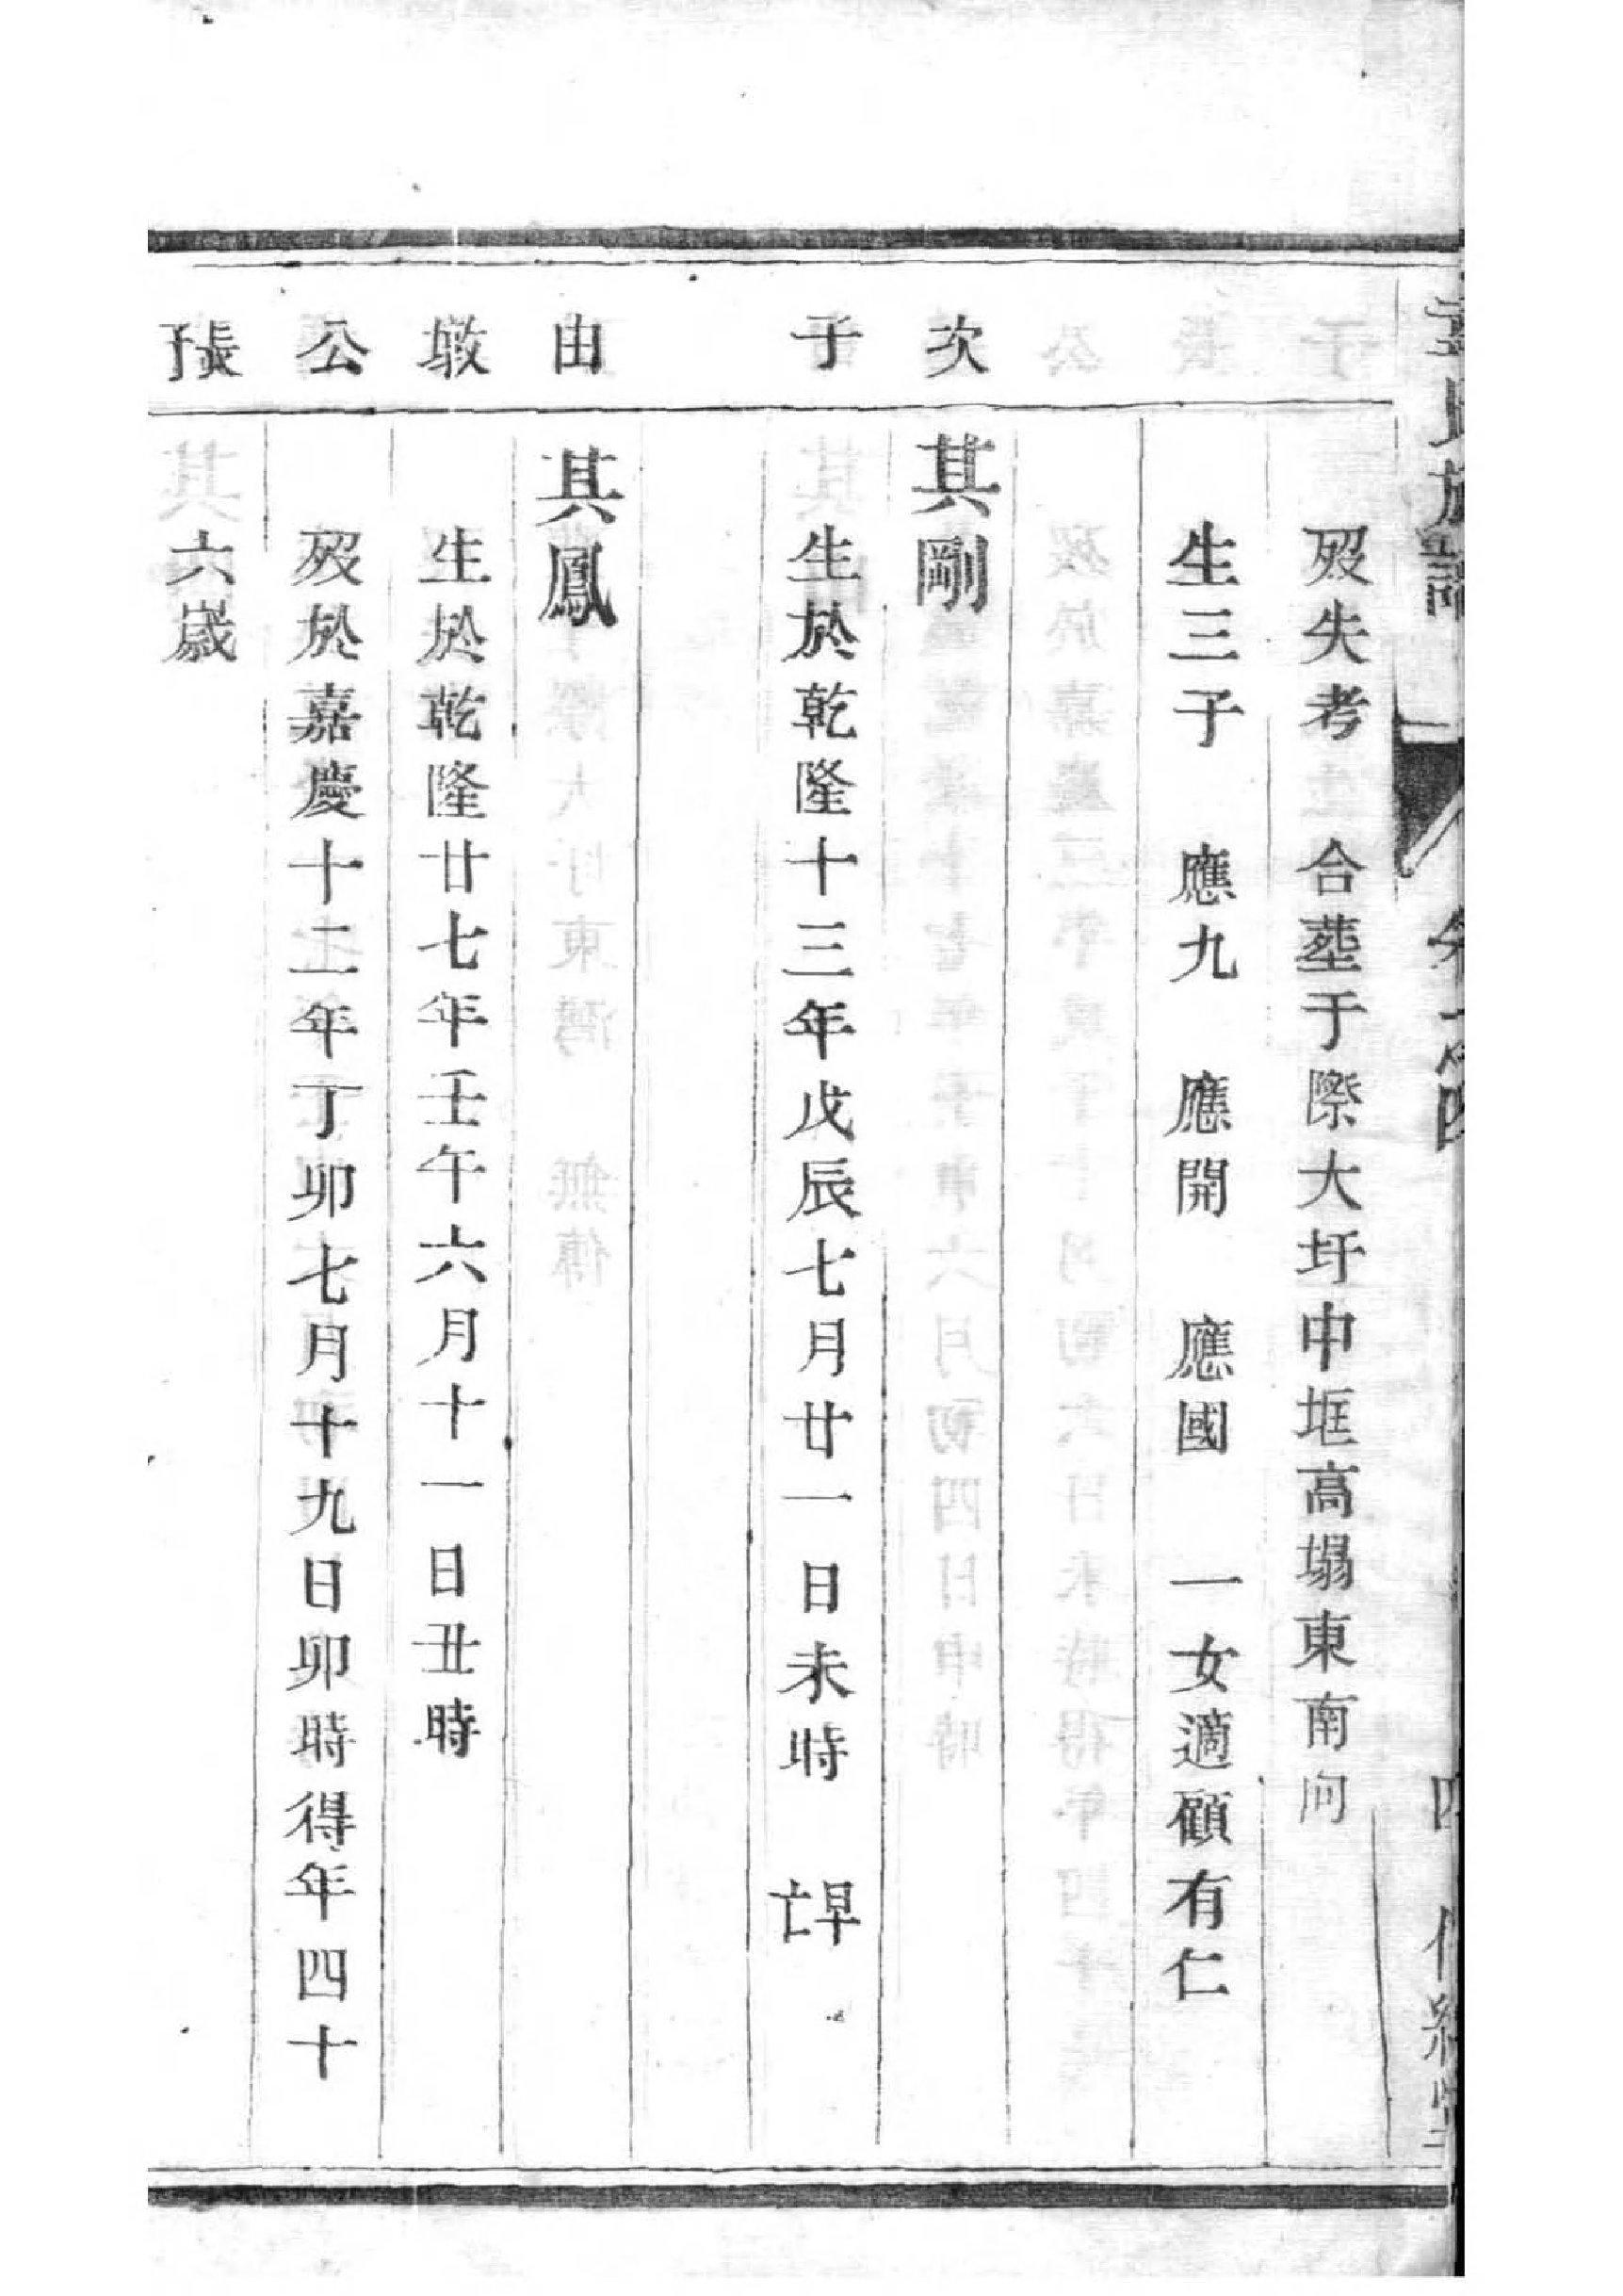 氏族譜 四
歿失考 合塟于際大圩中框高塌東南向
生三子 應九 應開 應國 一女適顧有仁
次子
其剛
生於乾隆十三年戊辰七月廿一日未時 早亡
由墩公長子
其鳳
生於乾隆廿七年壬午六月十一日丑時
歿於嘉慶十二年丁卯七月十九日卯時得年四十
六歲